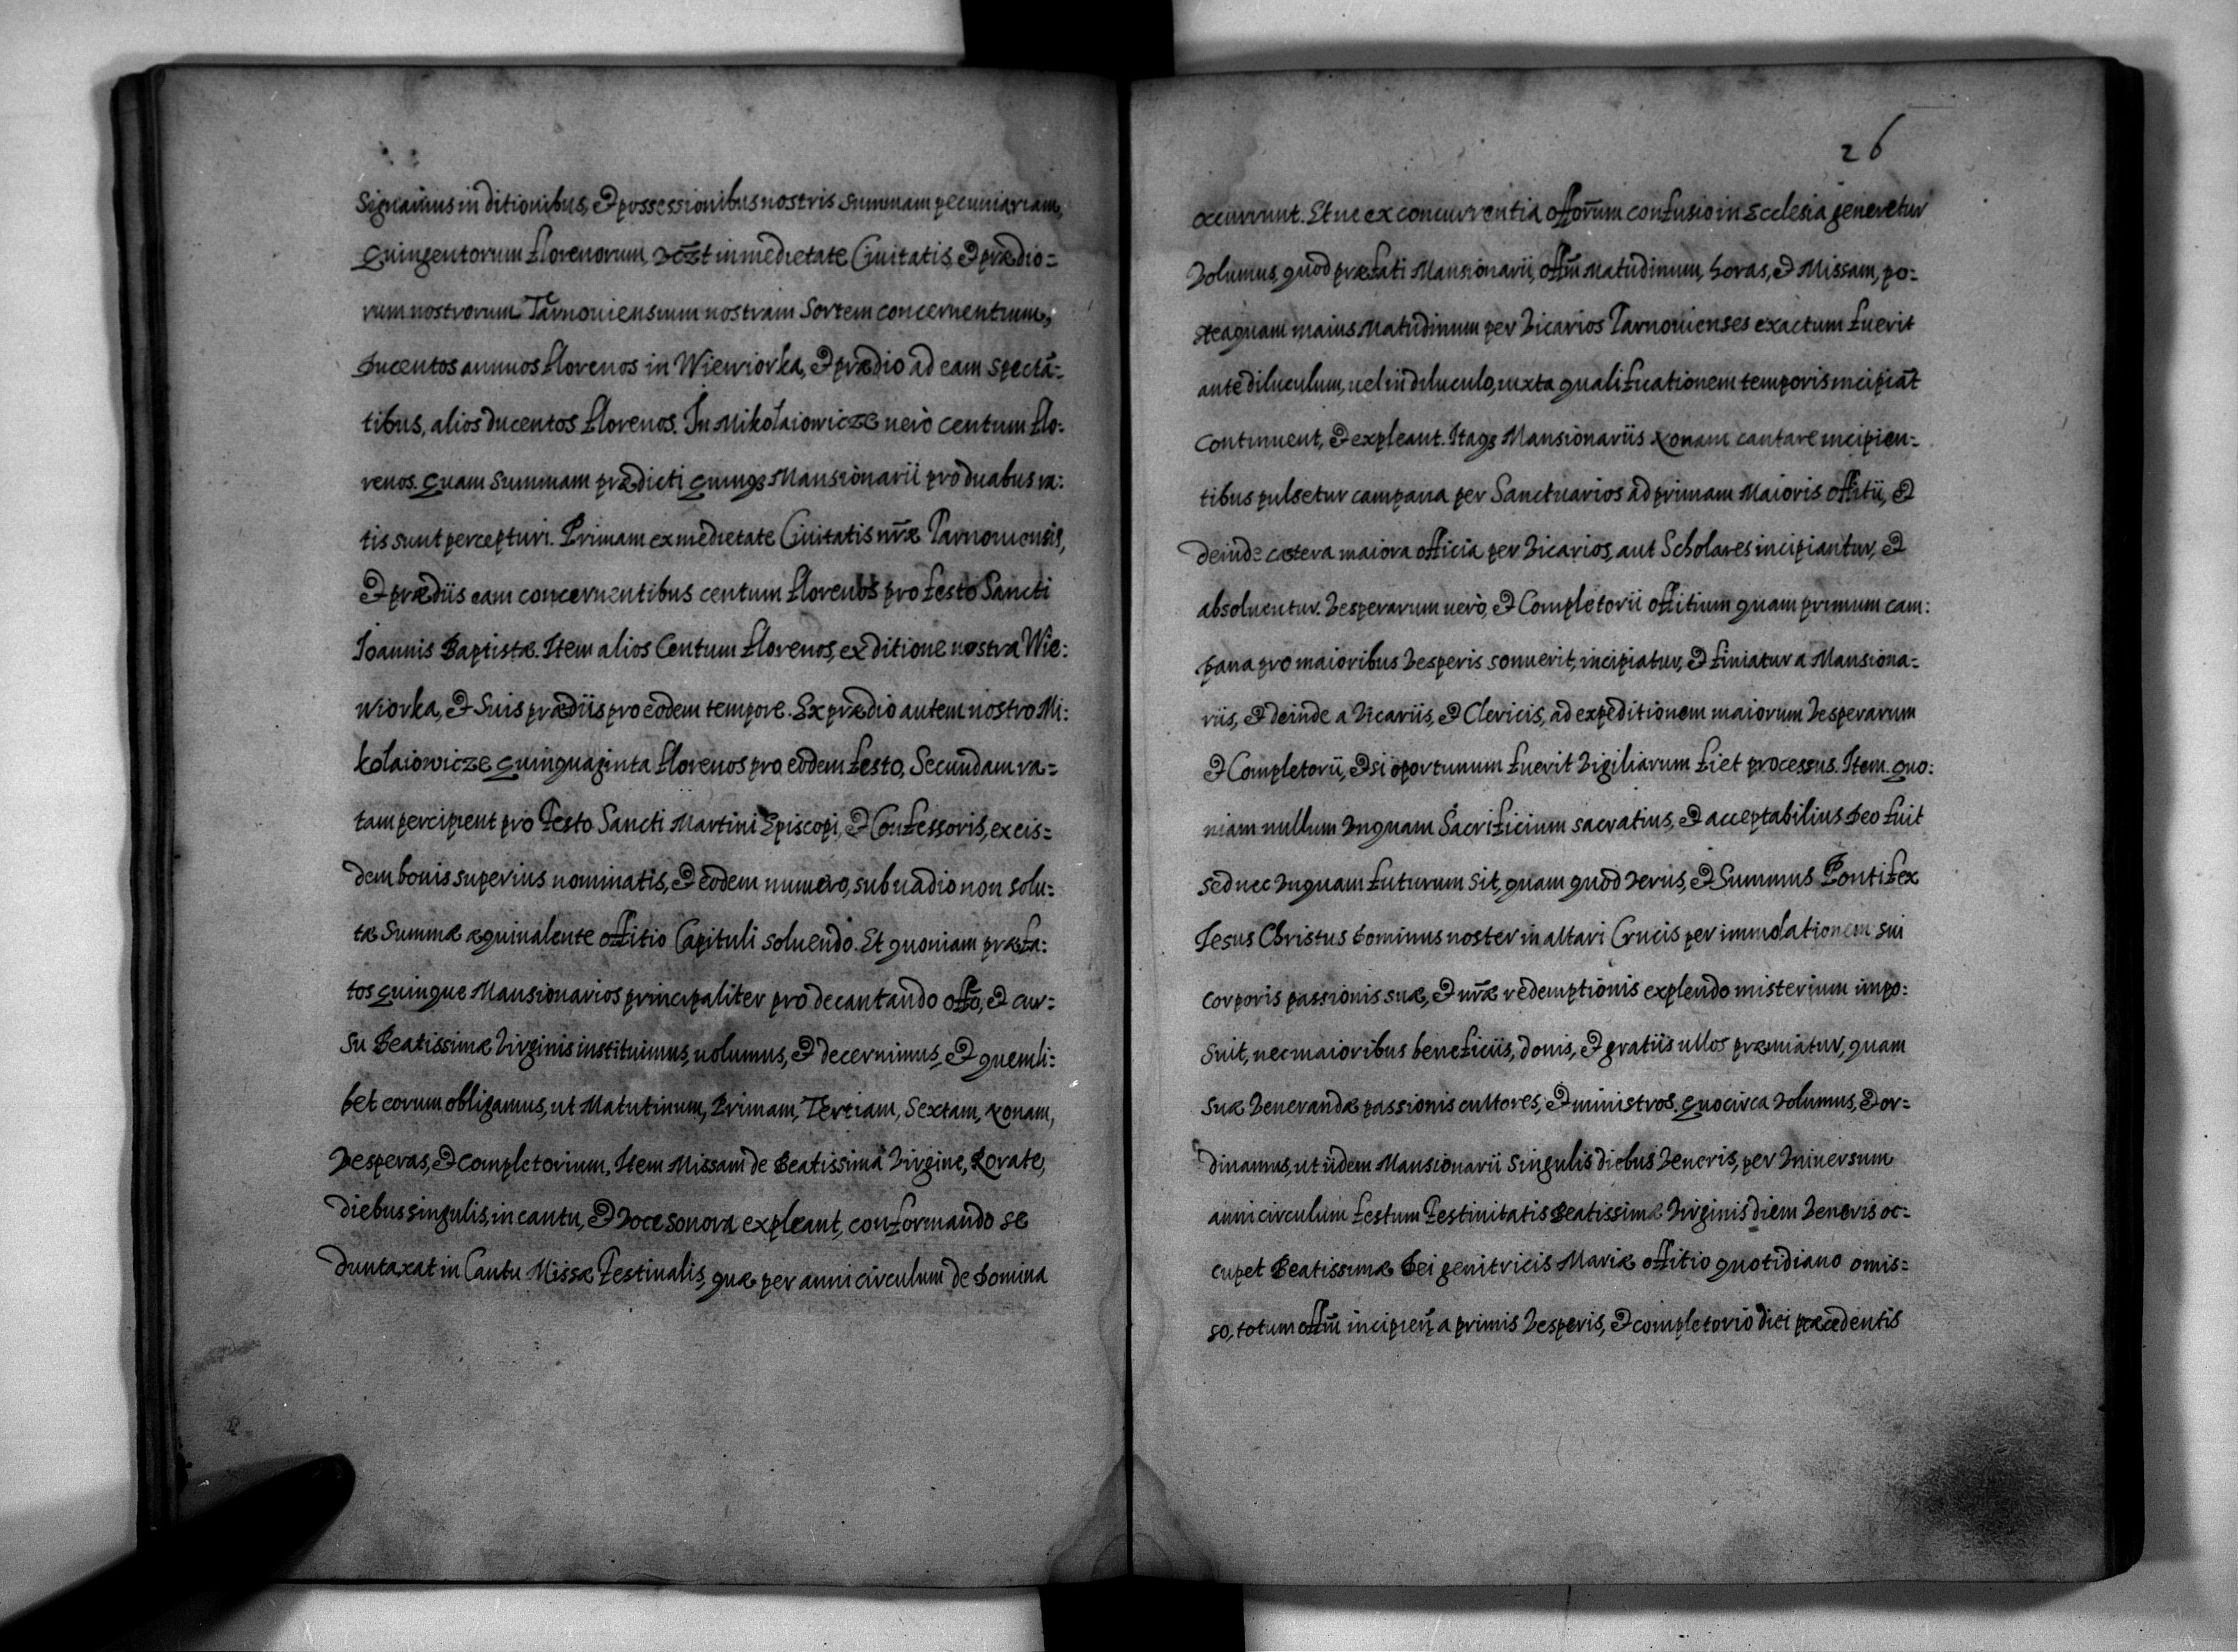 Signamus in ditionibus, et possessionibus nostris Summam pecuniariam,
Quingentorum florenorum, in medietate Ciuitatis, et prædio=
rum nostrorum Tarnouiensium nostram Sortem concernentium,
Ducentos annuos florenos in Wiewiorka, et prædio ad eam spectā=
tibus, alios ducentos florenos. In Mikołaiowicze uerò centum flo:
renos. Quam Summam prædicti Quinq3 Mansionarii pro duabus ra:
tis sunt percepturi. Primam ex medietate Ciuitatis nr̃æ Tarnouiensis,
et prædiis eam concernentibus centum florenos pro festo Sancti
Ioannis Baptistæ. Item alios Centum florenos, ex ditione nostra Wie:
wiorka, et Suis prædiis pro eodem tempore. Ex prædio autem nostro Mi:
kołaiowicze Quinquaginta florenos pro eodem festo, Secundam ra=
tam percipient pro Festo Sancti Martini Episcopi, et Confessoris, ex eis=
dem bonis superius nominatis, et eodem numero, sub uadio non solu:
tæ Summæ æquiualente offitio Capituli soluendo. Et quoniam præfa:
tos Quinque Mansionarios principaliter pro decantando offõ, et cur=
su Beatissimæ Virginis instituimus, uolumus, et decernimus, et quemli:
bet eorum obligamus, ut Matutinum, Primam, Tertiam, Sextam, Nonam,
Vesperas, et Completorium, Item Missam de Beatissima Virgine, Rorate,
diebus singulis, in cantu, et Voce sonora expleant, conformando se
duntaxat in Cantu Missæ Festiualis, quæ per anni circulum de Domina
26
occurrunt. Et ne ex concurrentia offorũm confusio in Ecclesia generetur
Volumus, quod præfati Mansionarii, offm̃ Matudinum, horas, et Missam, po=
steaquam maius Matudinum per Vicarios Tarnouienses exactum fuerit
ante diluculum, uel in diluculo, iuxta qualificationem temporis incipiāt
Continuent, et expleant. Itaq3 Mansionariis Nonam cantare incipien=
tibus pulsetur campana per Sanctuarios ad primam Maioris offitii, et
deinde cætera maiora officia per Vicarios, aut Scholares incipiantur, et
absoluentur. Vesperarum uerò, et Completorii offitium quam primum cam:
pana pro maioribus Vesperis sonuerit, incipiatur, et finiatur a Mansiona=
riis, et deinde a Vicariis, et Clericis, ad expeditionem maiorum Vesperarum
et Completorii, et si oportunum fuerit Vigiliarum fiet processus. Item. Quo:
niam nullum Vnquam Sacrificium sacratius, et acceptabilius Deo fuit
sed nec Vnquam futurum sit, quam quod Verus, et Summus Pontifex
Iesus Christus Dominus noster in altari Crucis per immolationem sui
corporis passionis suæ, et nr̃æ redemptionis explendo misterium impo:
suit, nec maioribus beneficiis, donis, et gratiis ullos præmiatur, quam
suæ Venerandæ passionis cultores, et ministros. Quocirca Volumus, et or=
dinamus, ut iidem Mansionarii Singulis diebus Veneris, per Vniuersum
anni circulum festum Festiuitatis Beatissimæ Virginis diem Veneris oc=
cupet Beatissimæ Dei genitricis Mariæ offitio quotidiano omis=
so, totum offm̃ a primis Vesperis, et completorio diei præcedentis